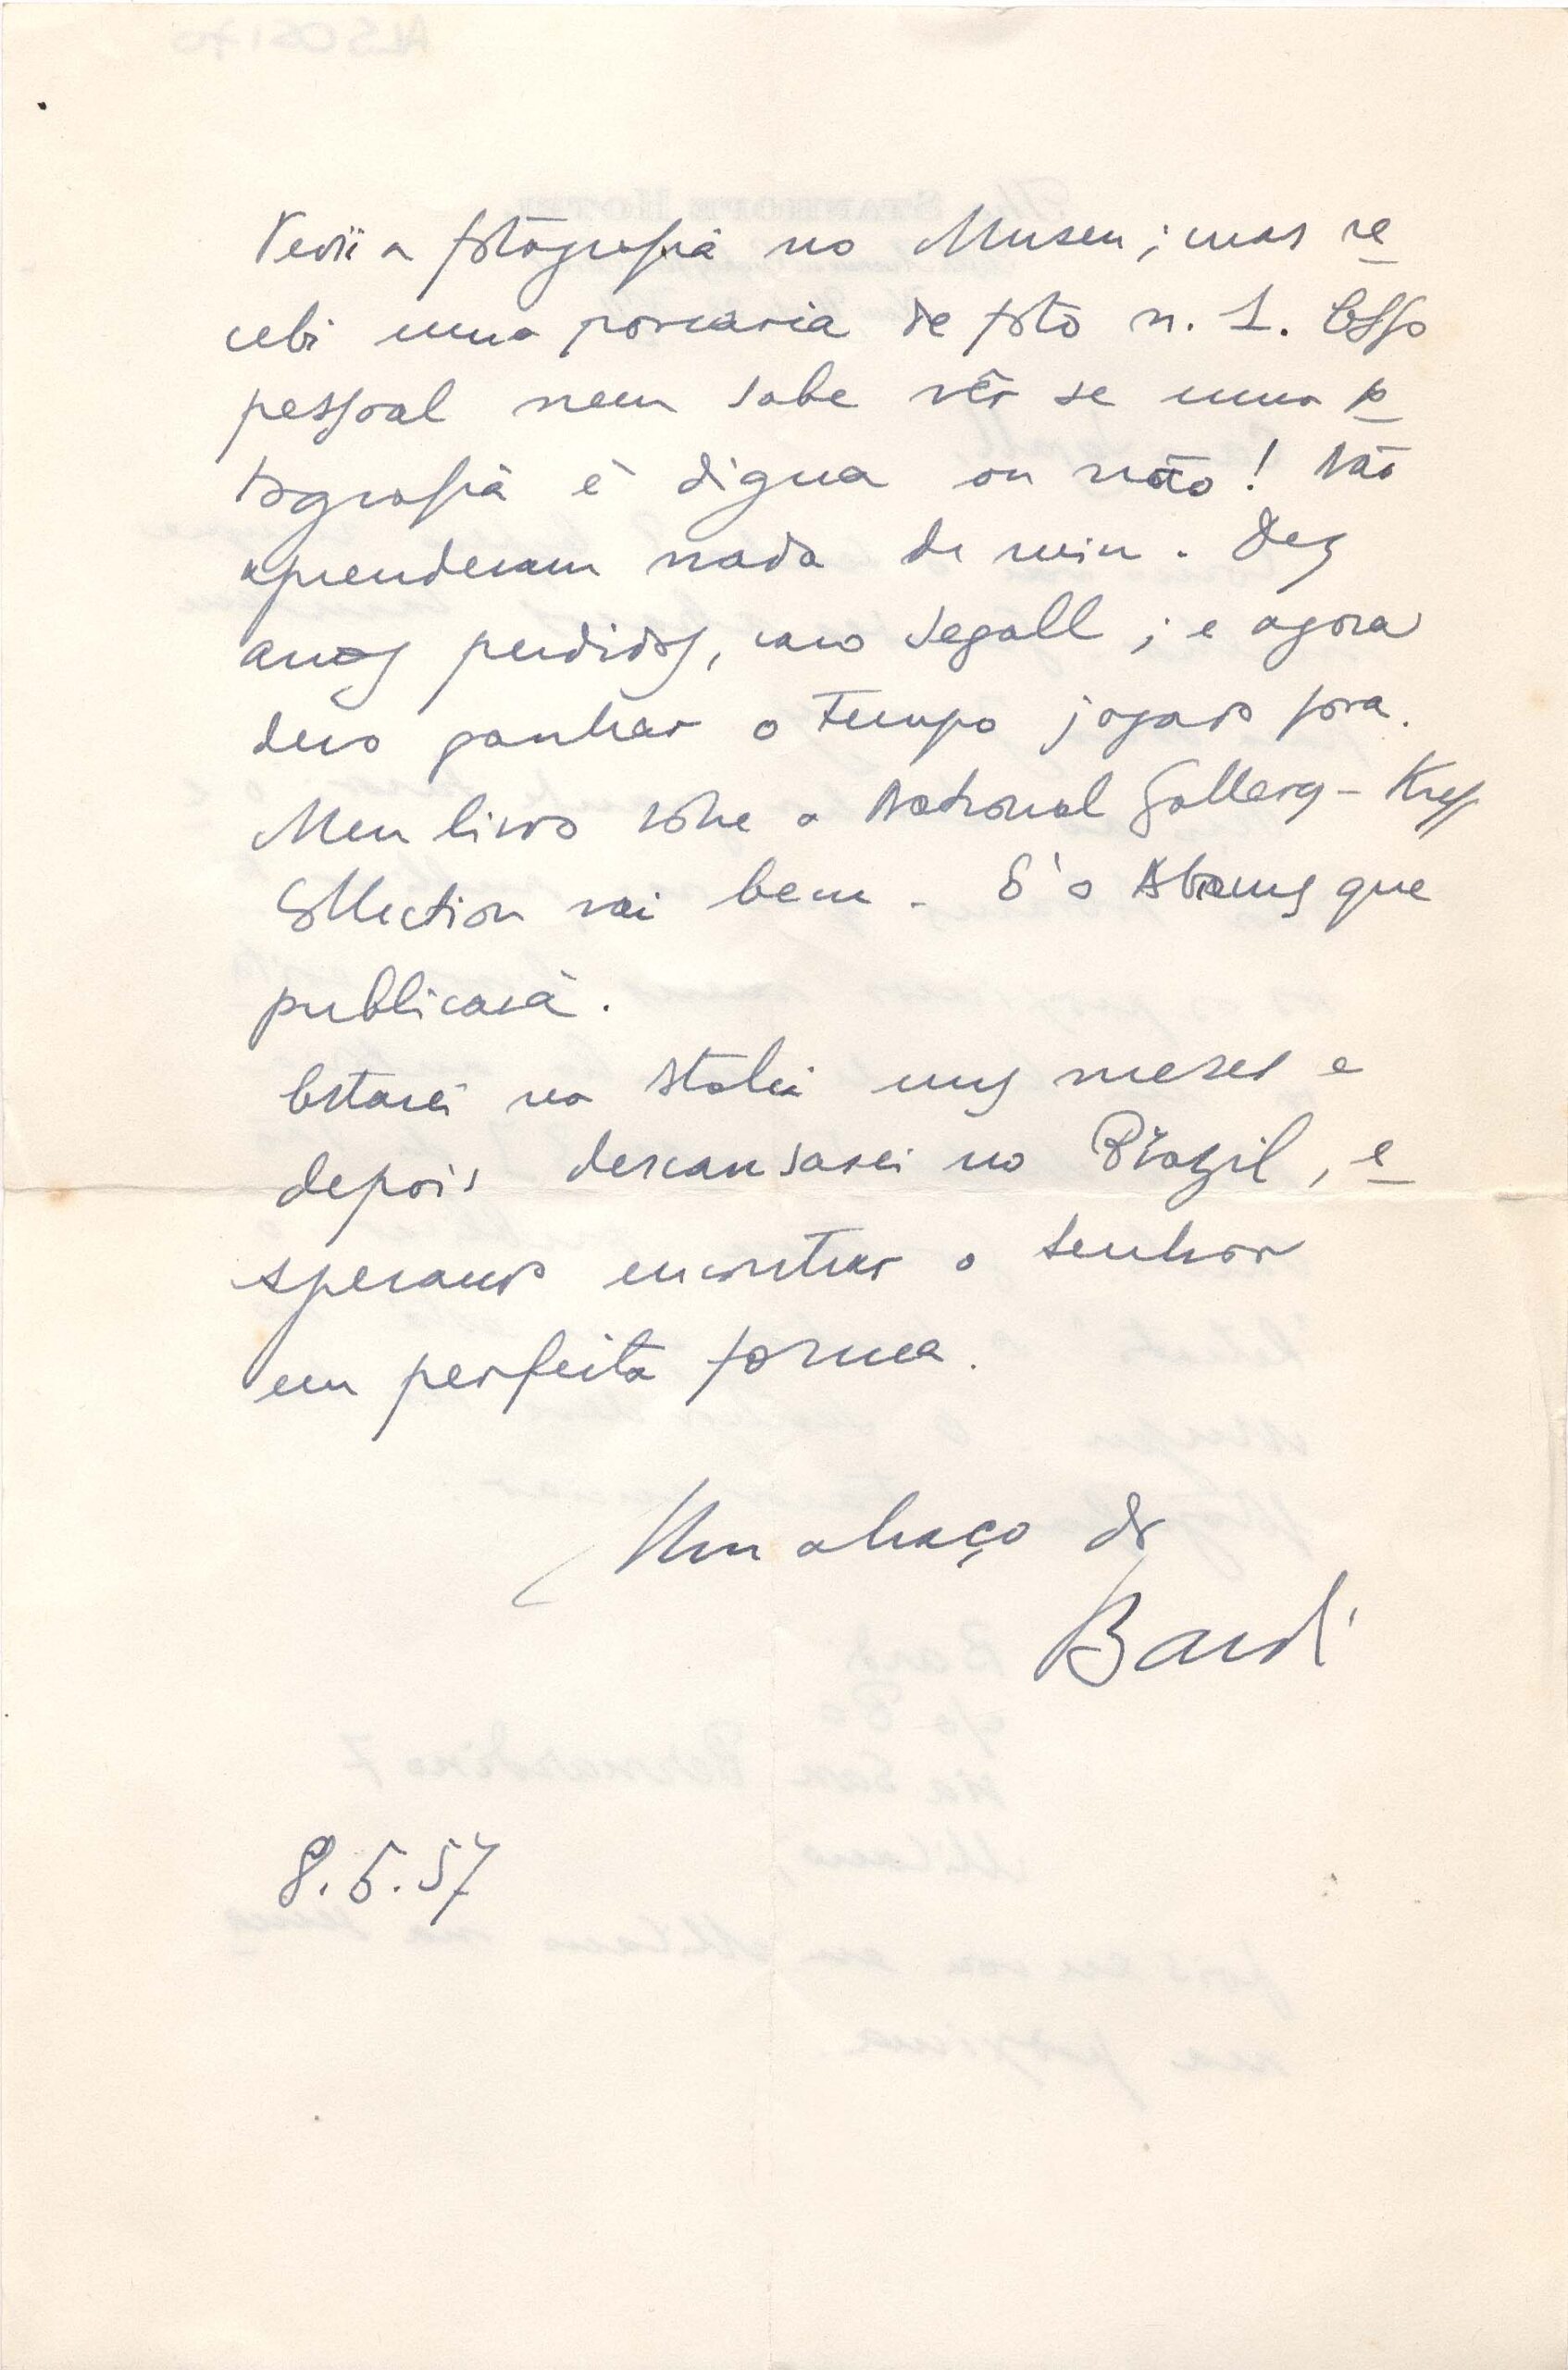 Pedii a fotografia no Museu; mas re
cebi uma porcaria de foto n. 1. Esso
pessoal nem sabe vêr se uma fo
tografia è digna ou não! Não
aprenderam nada de min. Dez
anos perdidos, caro Segall; e agora
devo ganhar o tempo jogado fora.
Meu livro sobre a National Gallery - Kress
Collection vai bem. E' o Abrams que
publicará.
Estarei na Italia uns meses e
depois descansarei no Brazil, e
sperando encontrar o senhor
em perfeita forma.
Um abraço de
Bardi
8.5.57